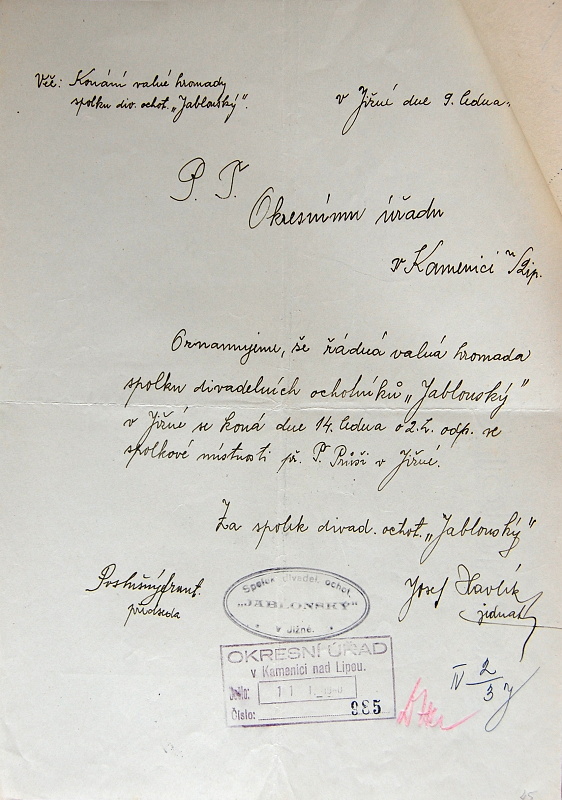 Věc: Konání valné hromady
spolku div. ochot. „Jablonský".
v Jiřné dne 9. ledna.
P. T.
Okresnímu úřadu
v Kamenici n/Lip.
Oznamujeme, že řádná valná hromada
spolku divadelních ochotníků „Jablonský"
v Jiřné se koná dne 14. ledna o 2 h. odp. ve
spolkové místnosti př. P. v Jiřné.
Za spolek divad. ochot. „Jablonský"
Poslušný Frant.
předseda
Josef Havlík
jednatel
Spolek divadel. ochot.
„JABLONSKÝ"
v Jiřné.
OKRESNÍ ÚŘAD
v Kamenici nad Lipou.
Došlo: 11 1
Číslo: 985
IV 2/3
45